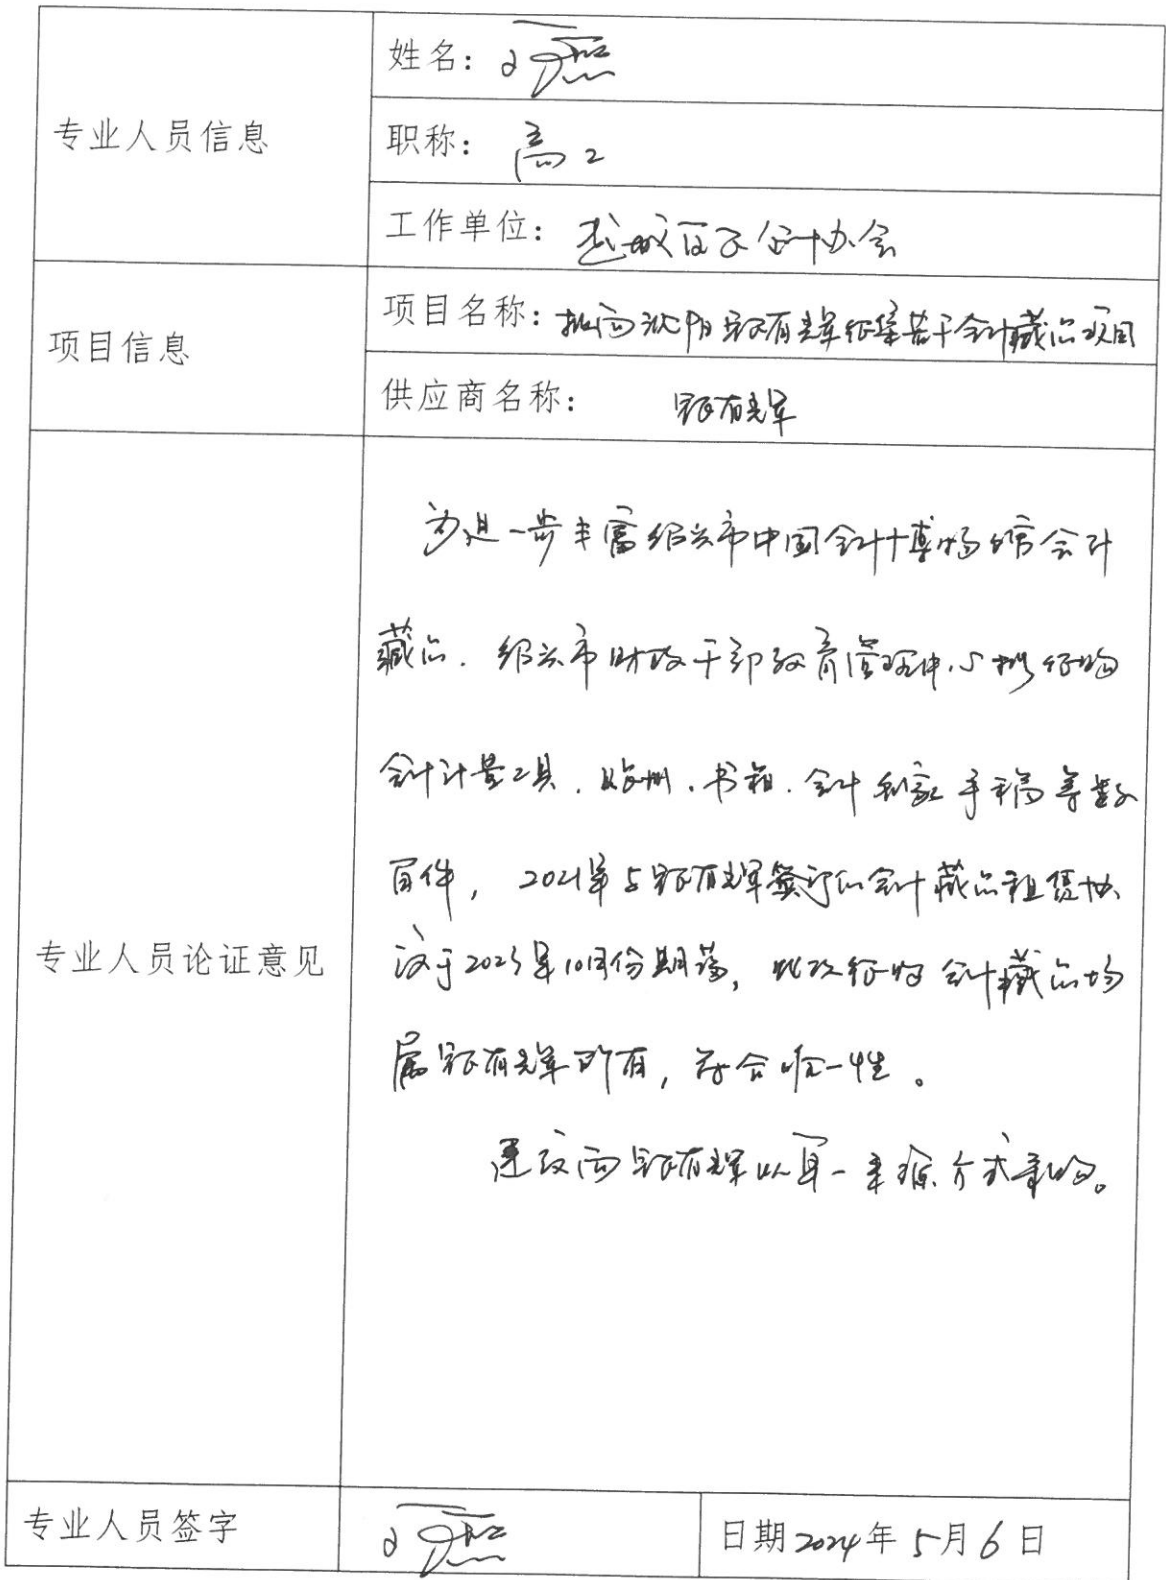 专业人员信息
姓名：
职称：高工
工作单位：越城区会计协会
项目信息
项目名称：拟向沈阳有辉征集若干会计藏品项目
供应商名称：有辉
专业人员论证意见
为进一步丰富绍兴市中国会计博物馆会计
藏品，绍兴市财政干部教育管理中心拟征购
会计计量工具、账册、书籍、会计名家手稿等数
百件，2021年与有辉签订的会计藏品租赁协
议于2023年10月份期满，此次征购会计藏品均
属有辉所有，符合唯一性。
建议向有辉以单一来源方式采购。
专业人员签字
日期2024年5月6日